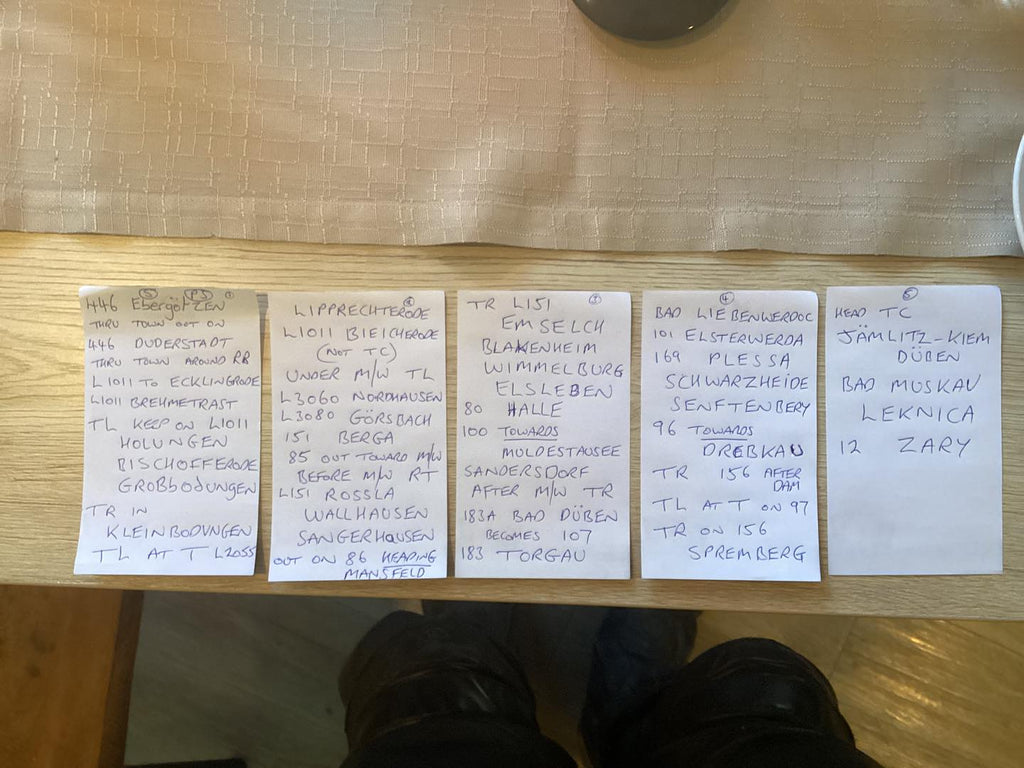 446 EbergötzEN
THRU TOWN OUT ON
446 DUDERSTADT
THRU TOWN AROUND RR
L1011 TO ECKLINGRODE
L1011 BREHMETRAST
TL KEEP ON L1011
HOLUNGEN
BISCHOFFERODE
GROßbODUNGEN
TR IN
KLEINBODUNGEN
TL AT T L2055
LIPPRECHTERODE
L1011 BIEICHERODE
(NOT TC)
UNDER M/W TL
L3060 NORDHAUSEN
L3080 GÖRSBACH
151 BERGA
85 OUT TOWARD M/W
BEFORE M/W RT
L151 ROSSLA
WALLHAUSEN
SANGERHAUSEN
OUT ON 86 HEADING
MANSFELD
TR L151
EMSELCH
BLANKENHEIM
WIMMELBURG
ELSLEBEN
80 HALLE
100 TOWARDS
MULDESTAUSEE
SANDERSDORF
AFTER M/W TR
183A BAD DÜBEN
BECOMES 107
183 TORGAU
4
BAD LIEBENWERDOC
101 ELSTERWERDA
169 PLESSA
SCHWARZHEIDE
SENFTENBERY
96 TOWARDS
DREBKAU
TR 156 AFTER
DAM
TL AT T ON 97
TR ON 156
SPREMBERG
5
HEAD TC
JÄMLITZ-KIEM
DÜBEN
BAD MUSKAU
LEKNICA
12 ZARY